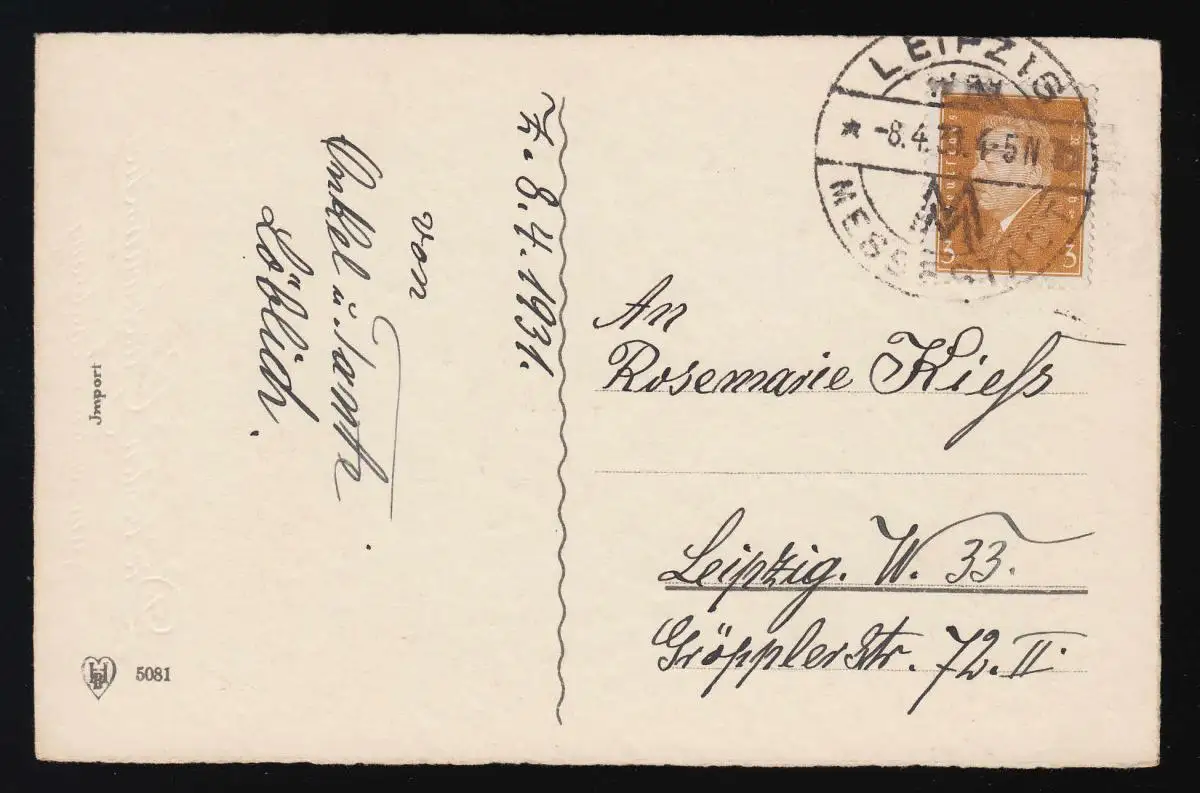 LEIPZIG
-8.4.33.4-5N
MESSESTADT
3 3
L. 8.4.1931.
von
Onkel u. Tante
Löblich.
An
Rosemarie Kiess
Leipzig. W. 33.
Gröpplerstr. 72. II.
Jmport
HWB
5081